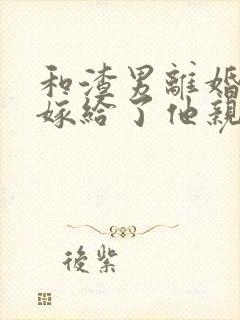 和渣男離婚
嫁給了他親
後紫